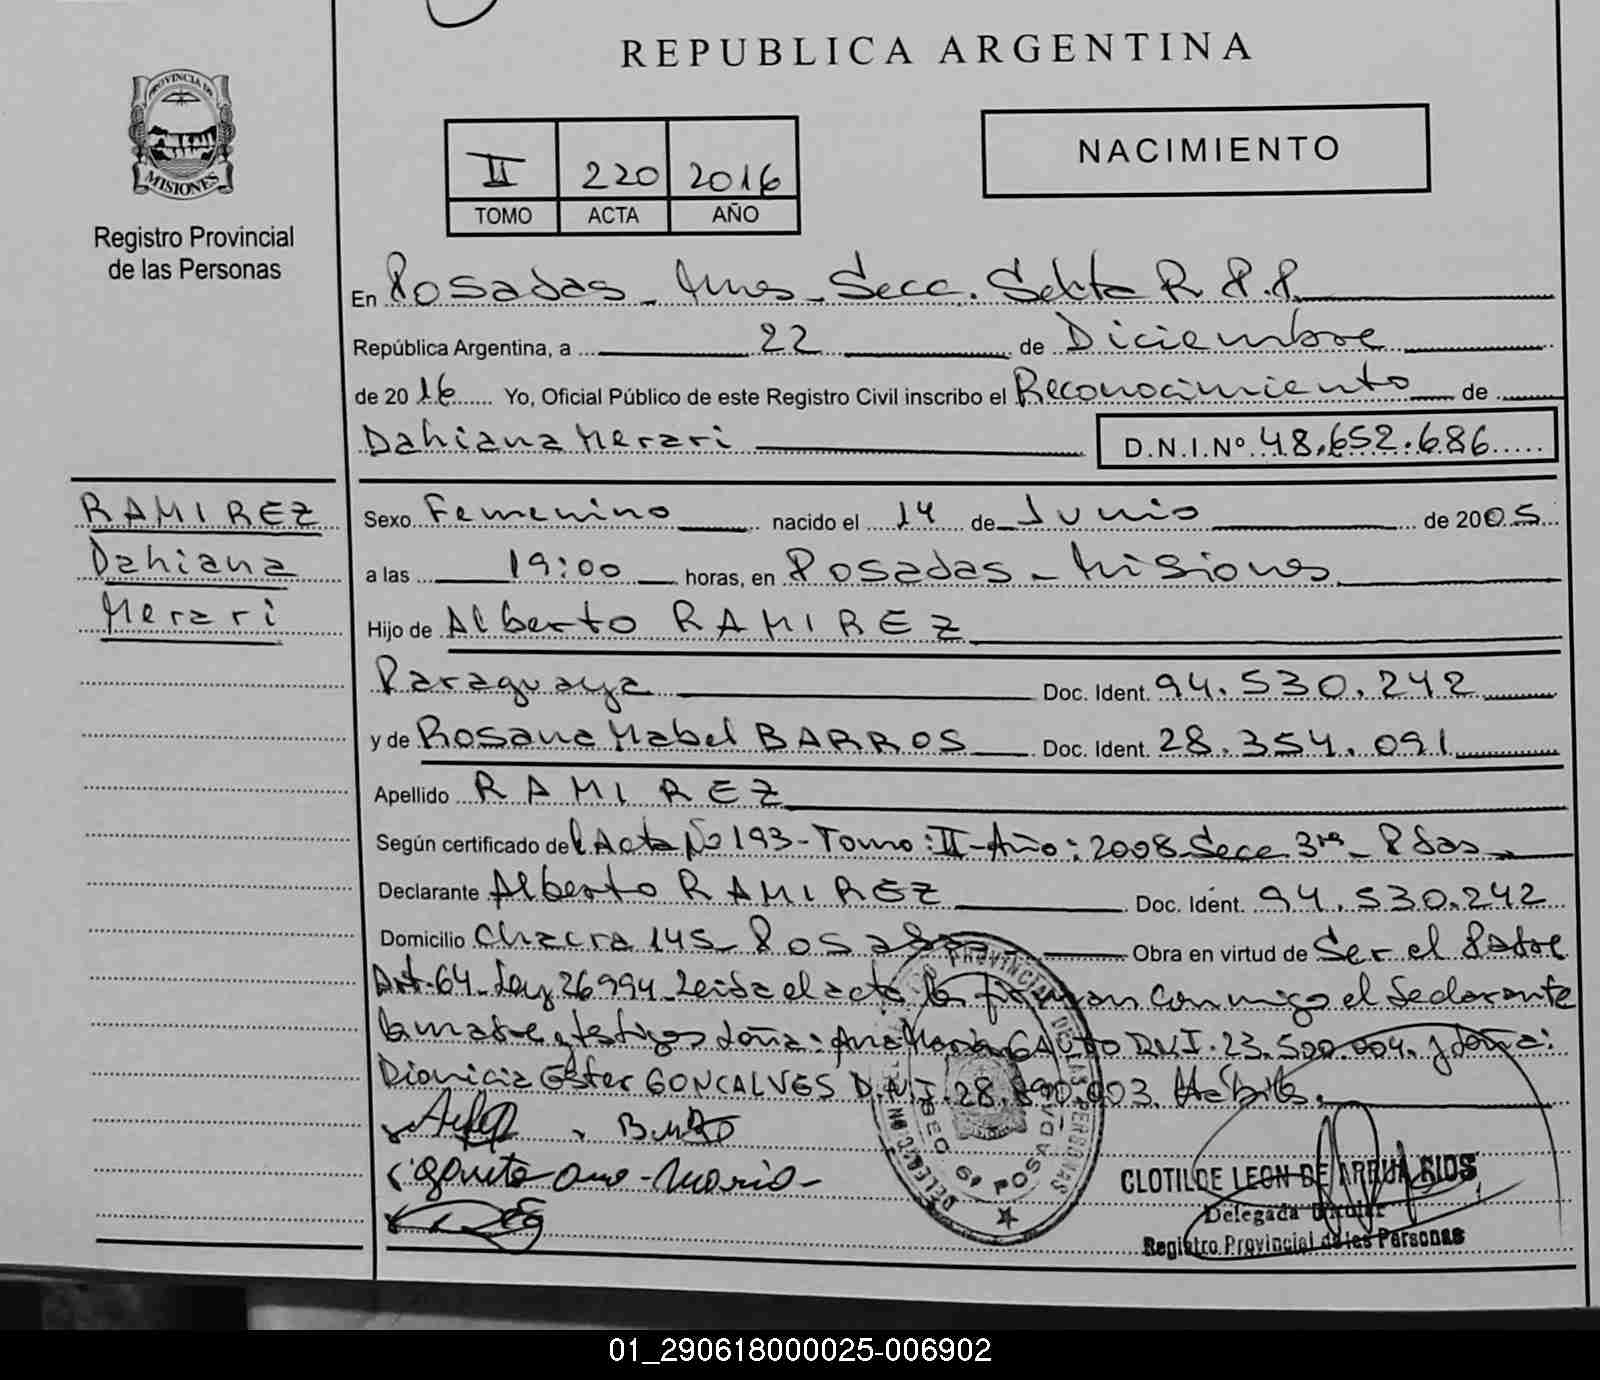 REPUBLICA ARGENTINA
PROVINCIA DE
MISIONES
Registro Provincial
de las Personas
II 220 2016
TOMO ACTA AÑO
NACIMIENTO
En Posadas - Mnes - Secc. Sexta R.P.P.
República Argentina, a 22 de Diciembre
de 2016 Yo, Oficial Público de este Registro Civil inscribo el Reconocimiento de
Dahiana Merari D.N.I.Nº 48.652.686
RAMIREZ
Dahiana
Merari
Sexo Femenino nacido el 14 de Junio de 2005
a las 19:00 horas, en Posadas - Misiones
Hijo de Alberto RAMIREZ
Paraguaya Doc. Ident. 94.530.242
y de Rosana Mabel BARROS Doc. Ident. 28.354.091
Apellido RAMIREZ
Según certificado del Acta Nº 193-Tomo:II-Año:2008 Secc 3ra - Pdas
Declarante Alberto RAMIREZ Doc. Ident. 94.530.242
Domicilio Chacra 145 - Posadas Obra en virtud de Ser el Padre
Art. 64 - Ley 26994 - Leída el acta la firman conmigo el declarante
la madre y testigos doña: Ana María GAUTO D.N.I. 23.500.004. y doña:
Dionicia Ester GONCALVES D.N.I. 28.890.903. Hábiles.
Gauto Ana - Maria -
PROVINCIAL DE LAS PERSONAS
SEC 6ª POSADAS
CLOTILDE LEON DE ARRUA RIOS
Delegada Titular
Registro Provincial de las Personas
01_290618000025-006902